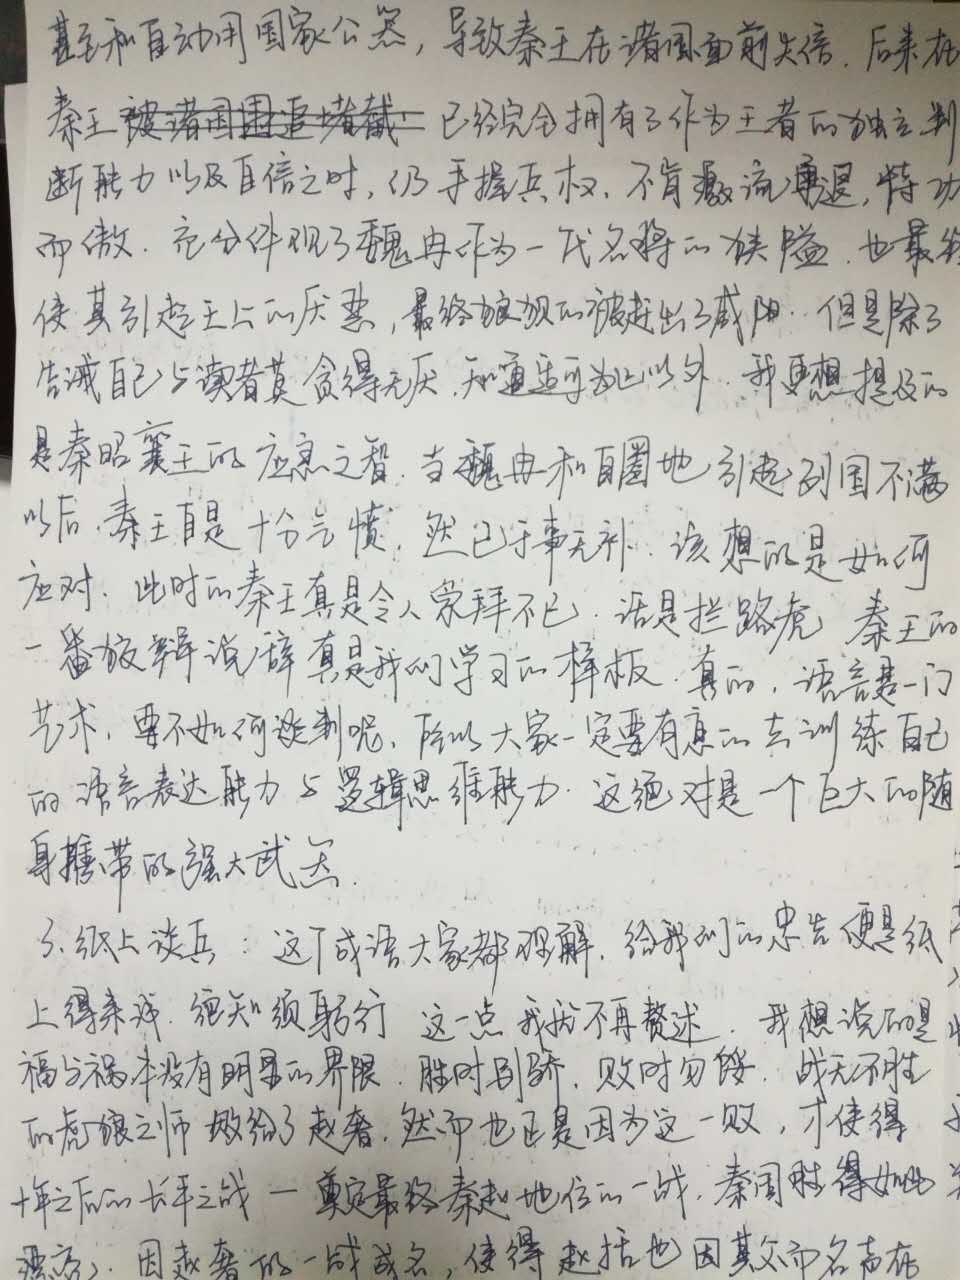 甚至私自动用国家公器，导致秦王在诸国面前失信．后来在
秦王被诸国围追堵截 已经完全拥有了作为王者的独立判
断能力以及自信之时，仍手握兵权，不肯激流勇退，恃功
而傲．充分体现了魏冉作为一代名将的狭隘．也最终
使其引起王上的厌恶，最终狼狈的被赶出了咸阳．但是除了
告诫自己与读者莫贪得无厌，知道适可为止以外．我更想提及的
是秦昭襄王的应急之智．当魏冉私自圈地引起列国不满
以后，秦王自是十分气愤，然已于事无补．该想的是如何
应对．此时的秦王真是令人崇拜不已．话是拦路虎 秦王的
一番放辩说辞真是我们学习的样板．真的，语言是一门
艺术，要不如何谈判呢，所以大家一定要有意的去训练自己
的语言表达能力与逻辑思维能力．这绝对是一个巨大的随
身携带的强大武器．
3、纸上谈兵：这个成语大家都理解，给我们的忠告便是纸
上得来浅．绝知须躬行 这一点我就不再赘述．我想说的是
福与祸本没有明显的界限．胜时别骄，败时勿馁．战无不胜
的虎狼之师败给了赵奢，然而也正是因为这一败，才使得
十年之后的长平之战—奠定最终秦赵地位的一战，秦国胜得如此
漂亮，因赵奢的一战成名，使得赵括也因其父而名声在